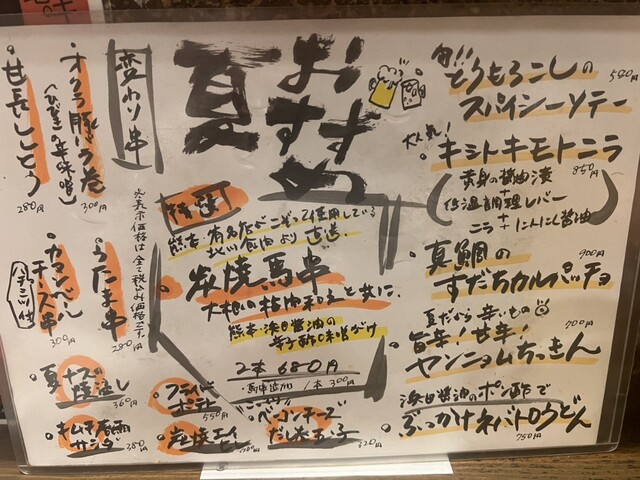 夏
おすすめ
旬!とうもろこしの
スパイシーソテー
590円
大人気!
キミトキモトニラ
850円
黄身の醤油漬
+
低温調理レバー
+
ニラ+にんにく醤油
真鯛の
すだちカルパッチョ
900円
夏だから辛いもの
旨辛!甘辛!
ヤンニョムちっきん
700円
浜田醤油のポン酢で
ぶっかけネバトロうどん
750円
特選
熊本 有名店がこぞって使用している
より直送
炭焼馬串
大根の柚油和えと共に
熊本・浜田醤油の
辛子酢味噌づけ
2本680円
1本300円
変わり串
オクラ豚バラ巻
300円
甘長ししとう
280円
※表示価格は全て税込み価格です。
うたま串
280円
カマンベール
チーズ串
ハチミツ付
300円
夏ヤサイの
360円
フライド
ポテト
550円
キムチ春雨
サラダ
380円
炭焼エイヒレ
ベーコンチーズ
だし巻玉子